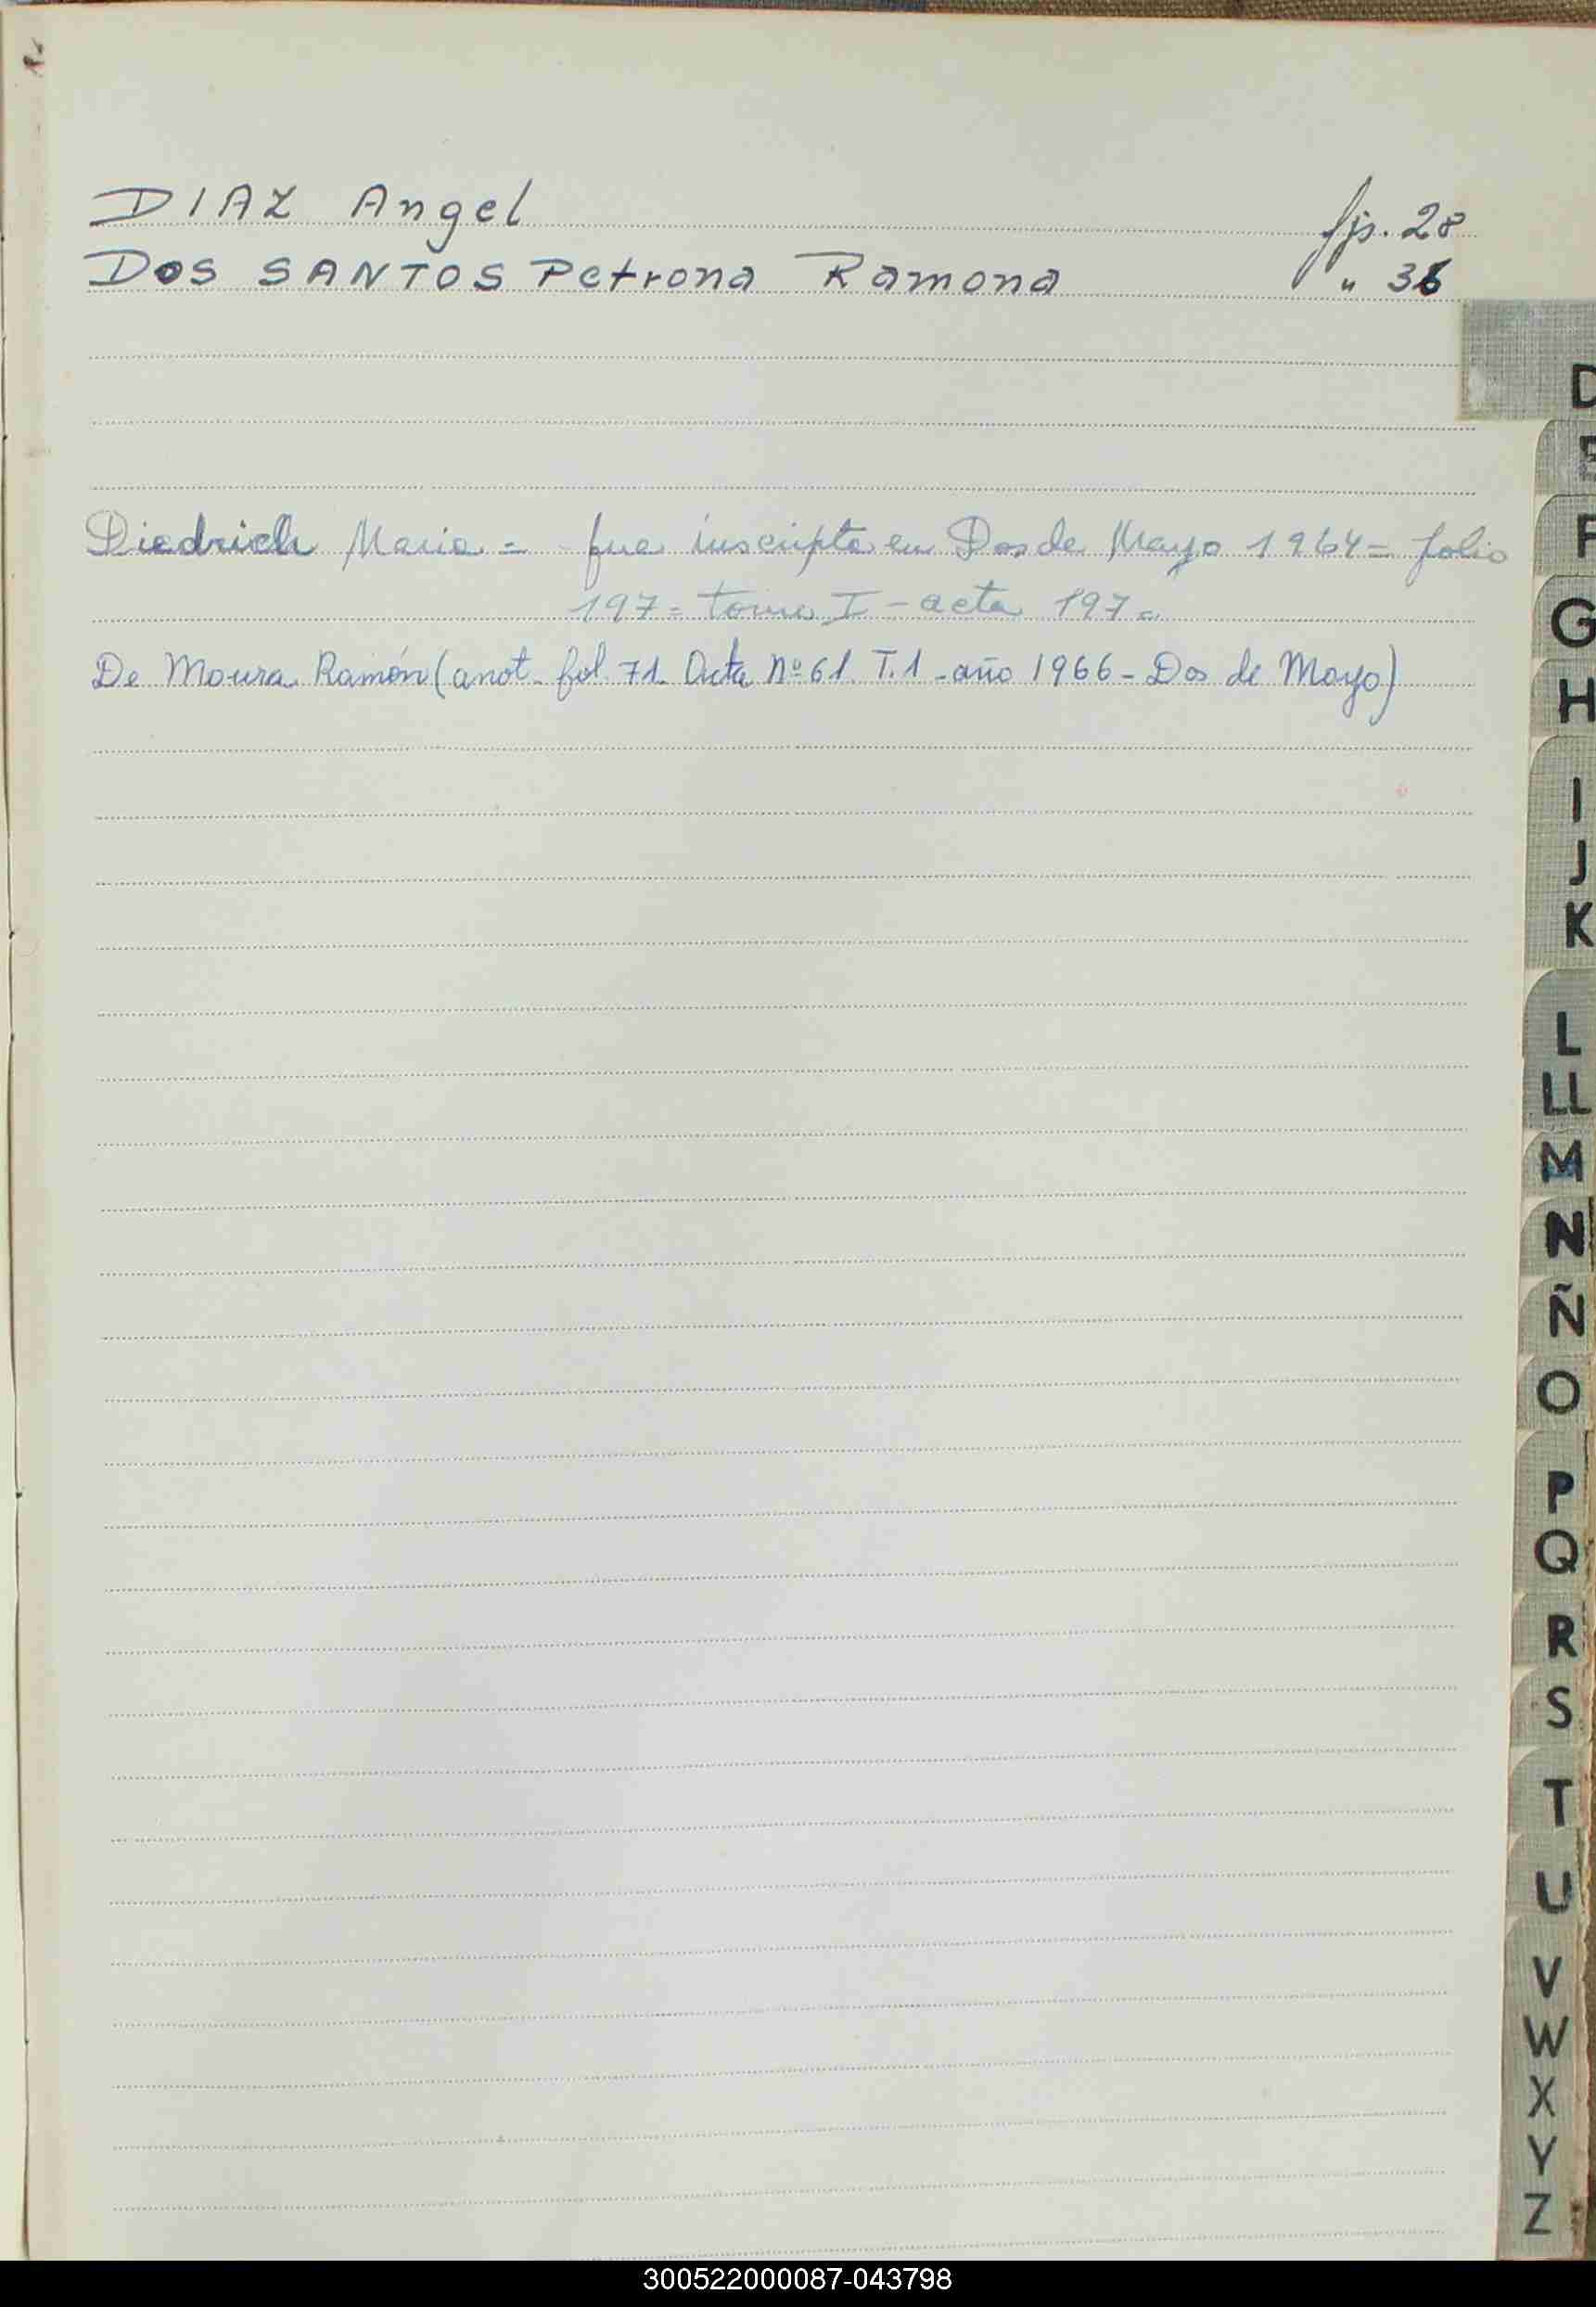 DIAZ Angel fjs. 28
DOS SANTOS Petrona Ramona " 36
D
E
Diedrich Maria = fue inscripta en Dos de Mayo 1964 = folio
F
197 = tomo I - acta 197 =
G
De Moura Ramón (anot. fol. 71. Acta Nº 61. T. 1 - año 1966 - Dos de Mayo)
H
I
J
K
L
LL
M
N
Ñ
O
P
Q
R
S
T
U
V
W
X
Y
Z
300522000087-043798